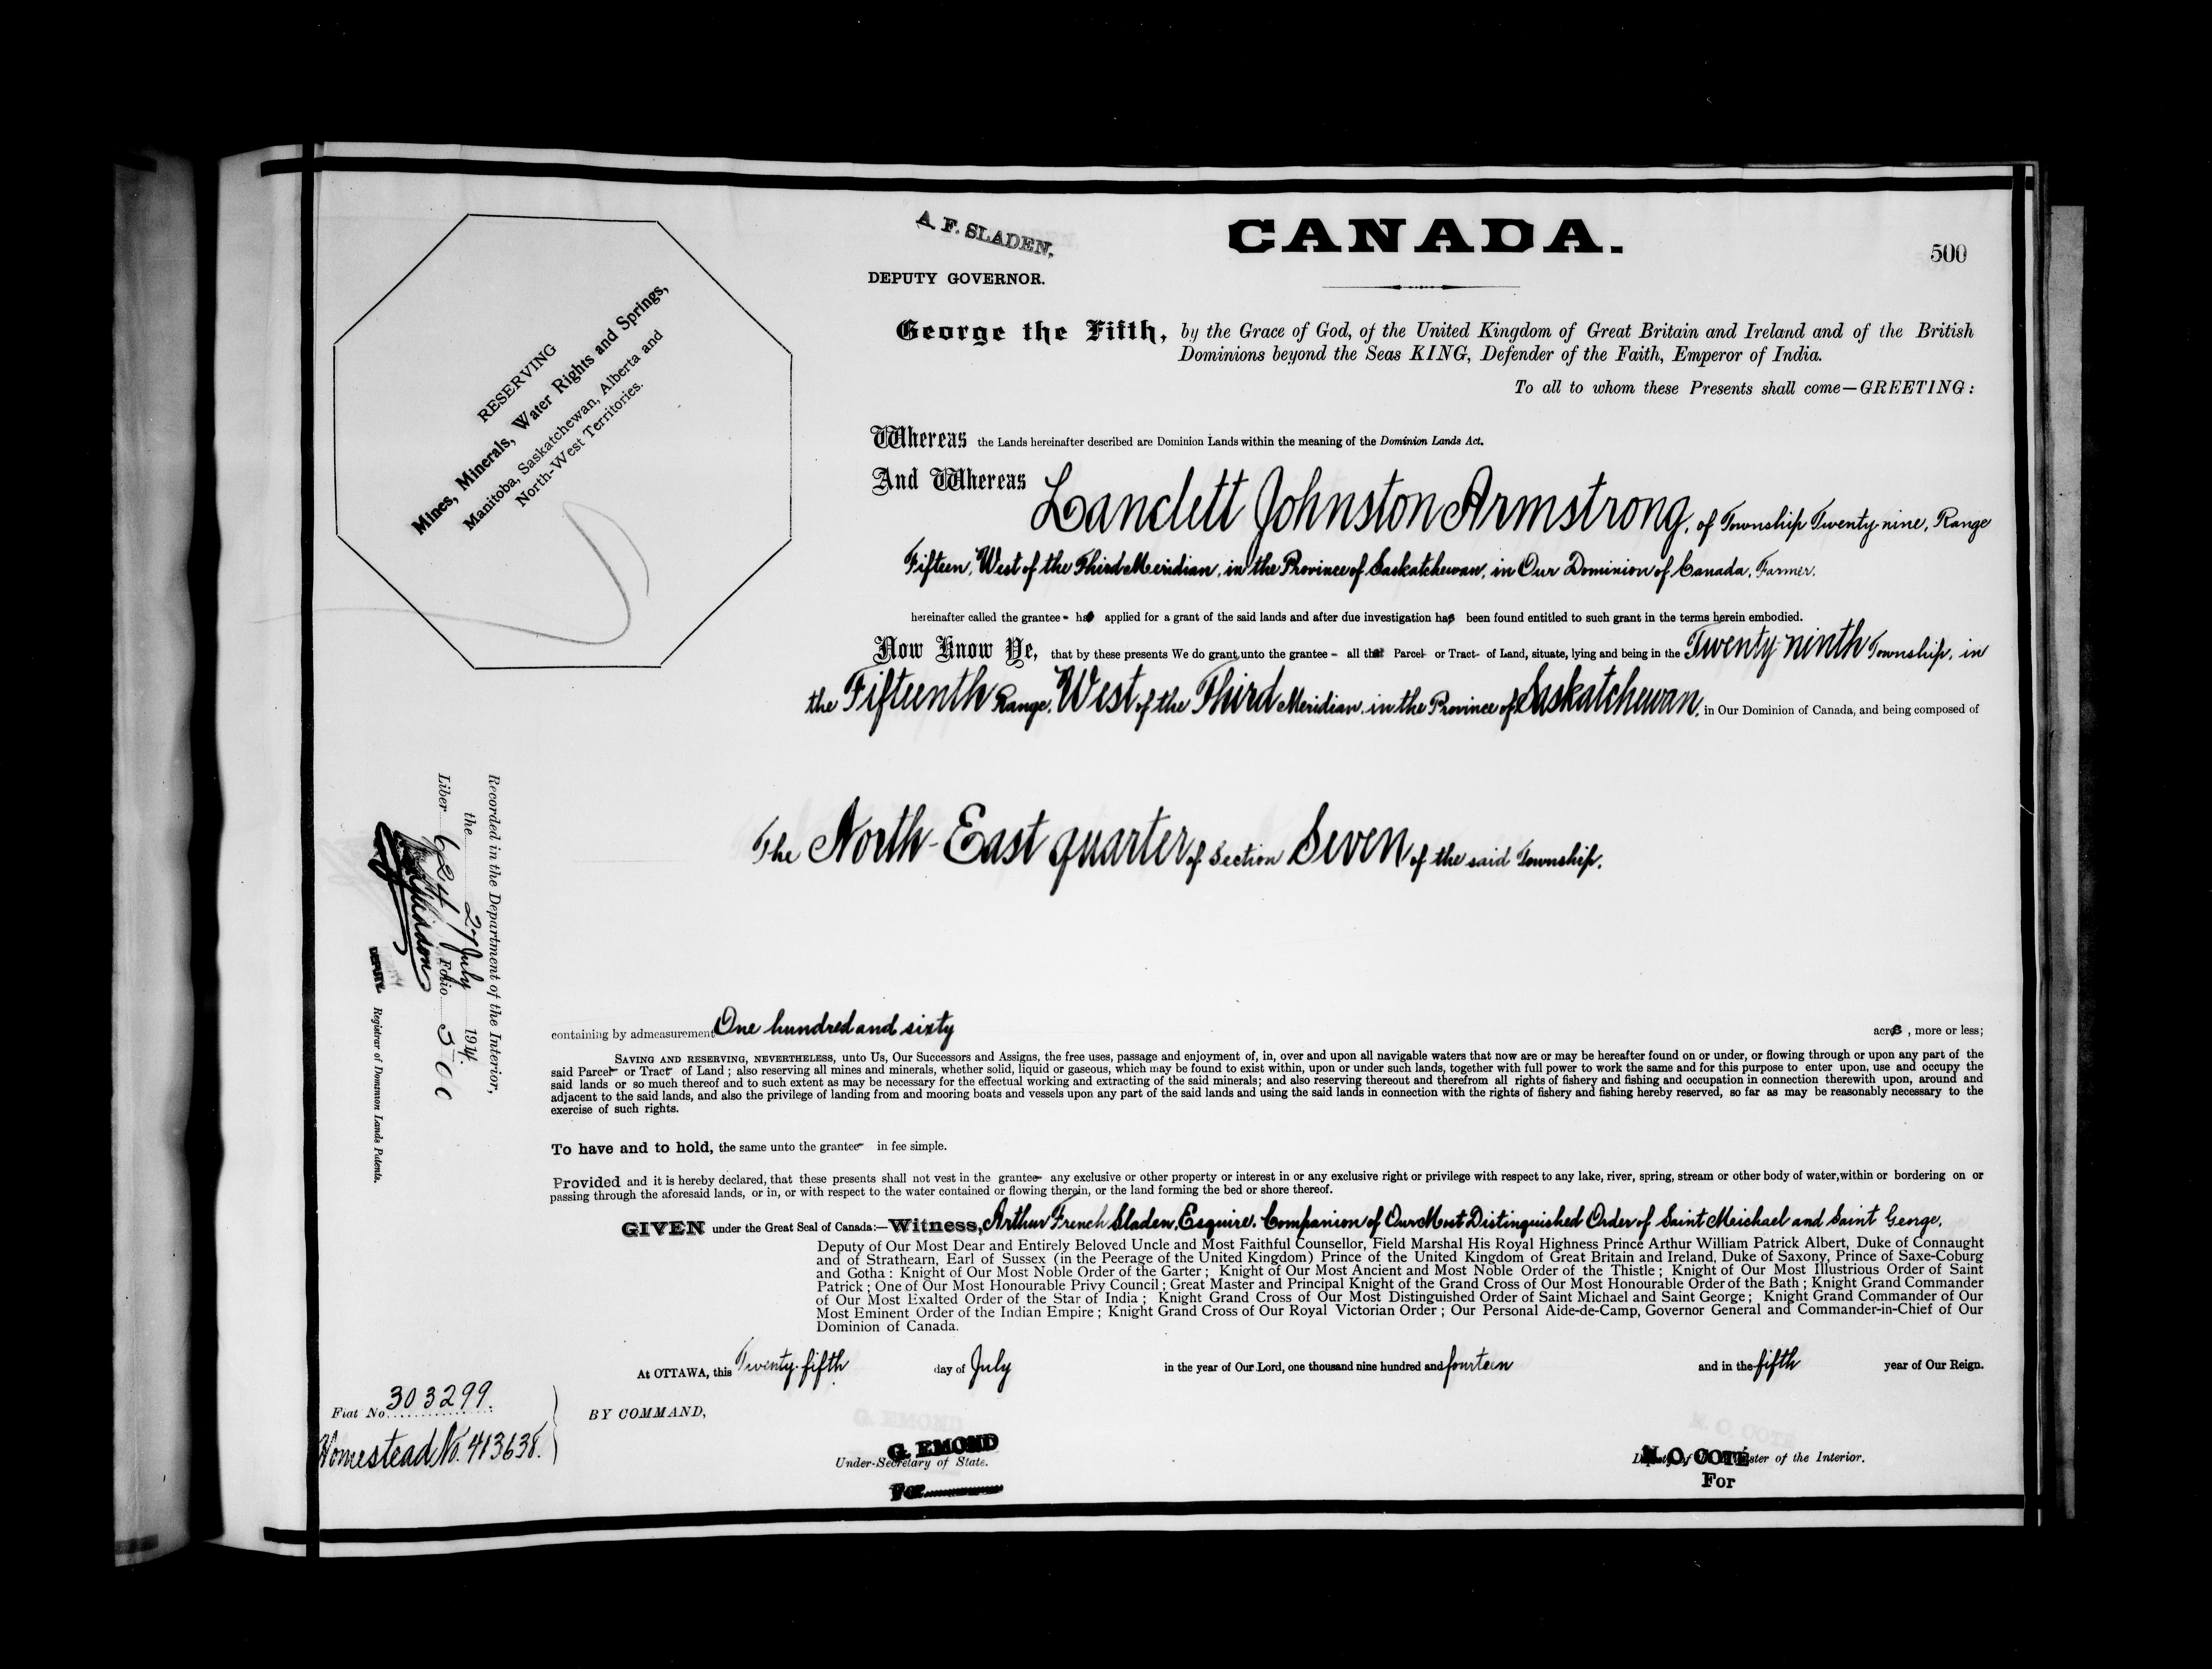 A. F. SLADEN,
DEPUTY GOVERNOR.
CANADA.
500
RESERVING
Mines, Minerals, Water Rights and Springs,
Manitoba, Saskatchewan, Alberta and
North-West Territories.
George the Fifth, by the Grace of God, of the United Kingdom of Great Britain and Ireland and of the British
Dominions beyond the Seas KING, Defender of the Faith, Emperor of India.
To all to whom these Presents shall come—GREETING:
Whereas the Lands hereinafter described are Dominion Lands within the meaning of the Dominion Lands Act.
And Whereas Lanclett Johnston Armstrong, of Township Twenty nine, Range
Fifteen, West of the Third Meridian, in the Province of Saskatchewan, in Our Dominion of Canada, Farmer.
hereinafter called the grantee - has applied for a grant of the said lands and after due investigation has been found entitled to such grant in the terms herein embodied.
Now Know Ye, that by these presents We do grant unto the grantee - all that Parcel or Tract of Land, situate, lying and being in the Twenty ninth Township, in
the Fifteenth Range, West of the Third Meridian, in the Province of Saskatchewan, in Our Dominion of Canada, and being composed of
The North-East quarter of Section Seven of the said Township.
containing by admeasurement One hundred and sixty acres, more or less;
SAVING AND RESERVING, NEVERTHELESS, unto Us, Our Successors and Assigns, the free uses, passage and enjoyment of, in, over and upon all navigable waters that now are or may be hereafter found on or under, or flowing through or upon any part of the
said Parcel or Tract of Land; also reserving all mines and minerals, whether solid, liquid or gaseous, which may be found to exist within, upon or under such lands, together with full power to work the same and for this purpose to enter upon, use and occupy the
said lands or so much thereof and to such extent as may be necessary for the effectual working and extracting of the said minerals; and also reserving thereout and therefrom all rights of fishery and fishing and occupation in connection therewith upon, around and
adjacent to the said lands, and also the privilege of landing from and mooring boats and vessels upon any part of the said lands and using the said lands in connection with the rights of fishery and fishing hereby reserved, so far as may be reasonably necessary to the
exercise of such rights.
To have and to hold, the same unto the grantee in fee simple.
Provided and it is hereby declared, that these presents shall not vest in the grantee any exclusive or other property or interest in or any exclusive right or privilege with respect to any lake, river, spring, stream or other body of water, within or bordering on or
passing through the aforesaid lands, or in, or with respect to the water contained or flowing therein, or the land forming the bed or shore thereof.
GIVEN under the Great Seal of Canada:—Witness, Arthur French Sladen, Esquire, Companion of Our Most Distinguished Order of Saint Meichael and Saint George,
Deputy of Our Most Dear and Entirely Beloved Uncle and Most Faithful Counsellor, Field Marshal His Royal Highness Prince Arthur William Patrick Albert, Duke of Connaught
and of Strathearn, Earl of Sussex (in the Peerage of the United Kingdom) Prince of the United Kingdom of Great Britain and Ireland, Duke of Saxony, Prince of Saxe-Coburg
and Gotha: Knight of Our Most Noble Order of the Garter; Knight of Our Most Ancient and Most Noble Order of the Thistle; Knight of Our Most Illustrious Order of Saint
Patrick; One of Our Most Honourable Privy Council; Great Master and Principal Knight of the Grand Cross of Our Most Honourable Order of the Bath; Knight Grand Commander
of Our Most Exalted Order of the Star of India; Knight Grand Cross of Our Most Distinguished Order of Saint Michael and Saint George; Knight Grand Commander of Our
Most Eminent Order of the Indian Empire; Knight Grand Cross of Our Royal Victorian Order; Our Personal Aide-de-Camp, Governor General and Commander-in-Chief of Our
Dominion of Canada.
At OTTAWA, this Twenty-fifth day of July in the year of Our Lord, one thousand nine hundred and fourteen and in the fifth year of Our Reign.
BY COMMAND,
G. EMOND
Under-Secretary of State.
For
N. O. COTÉ
Deputy of Minister of the Interior.
For
Recorded in the Department of the Interior,
the 27 July 1914.
Liber 624 Folio 500
DEPUTY Registrar of Dominion Lands Patents.
Fiat No 303299.
Homestead No. 413638.